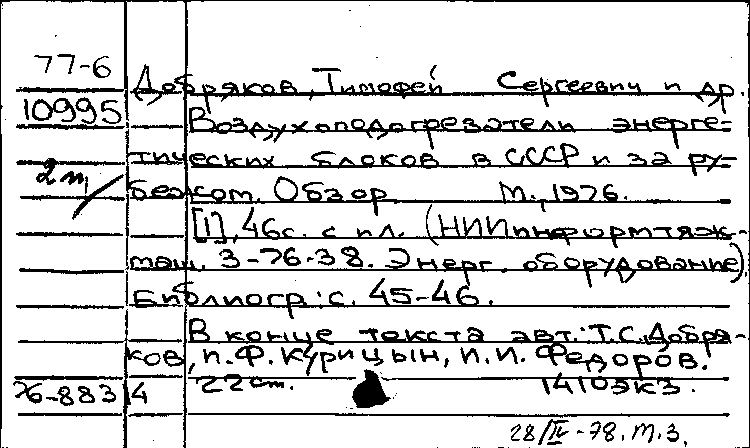 77-6
Добряков, Тимофей Сергеевич и др.
10995
Воздухоподогреватели энерге=
тических блоков в СССР и за ру-
2 m/
бежом. Обзор. М., 1976.
[1], 46с. с ил. (НИИинформтяж-
маш. 3-76-38. Энерг. оборудование).
Библиогр: с. 45-46.
В конце текста авт.: Т.С. Добря-
ков, П.Ф. Курицын, П.И. Федоров.
76-883 4 22см. 1410экз.
28/IV-78. М.З.